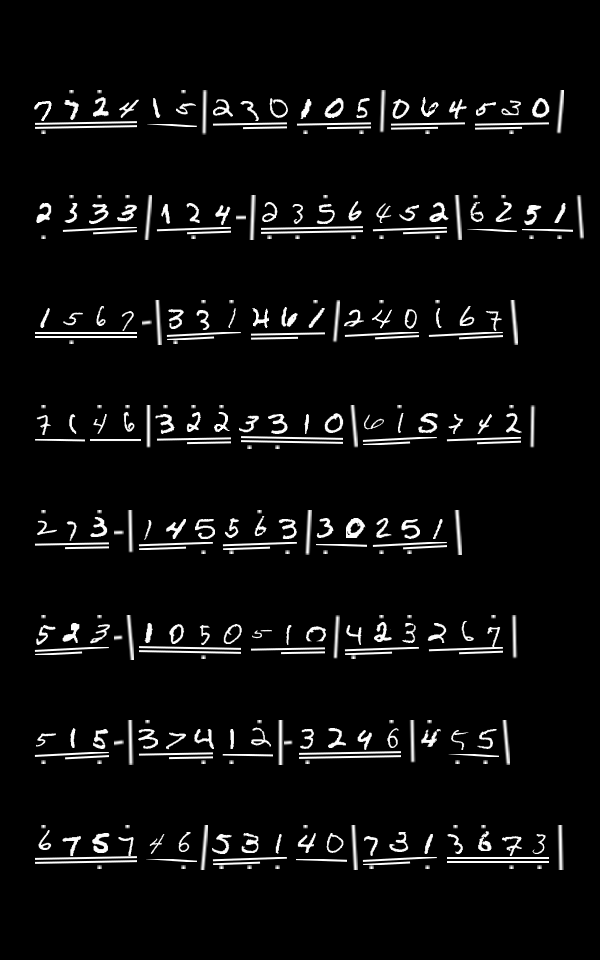 7 7 2 4 1 5 | 2 3 0 1 0 5 | 0 6 4 5 3 0 |
2 3 3 3 | 1 2 4 - | 2 3 5 6 4 5 2 | 6 2 5 1 |
1 5 6 7 - | 3 3 1 4 6 1 | 2 4 0 1 6 7 |
7 1 4 6 | 3 2 2 3 3 1 0 | 6 1 5 7 4 2 |
2 7 3 - | 1 4 5 5 6 3 | 3 0 2 5 1 |
5 2 3 - | 1 0 5 0 5 1 0 | 4 2 3 2 6 7 |
5 1 5 - | 3 7 4 1 2 | - 3 2 9 6 | 4 5 5 |
6 7 5 7 4 6 | 5 3 1 4 0 | 7 3 1 3 6 7 3 |